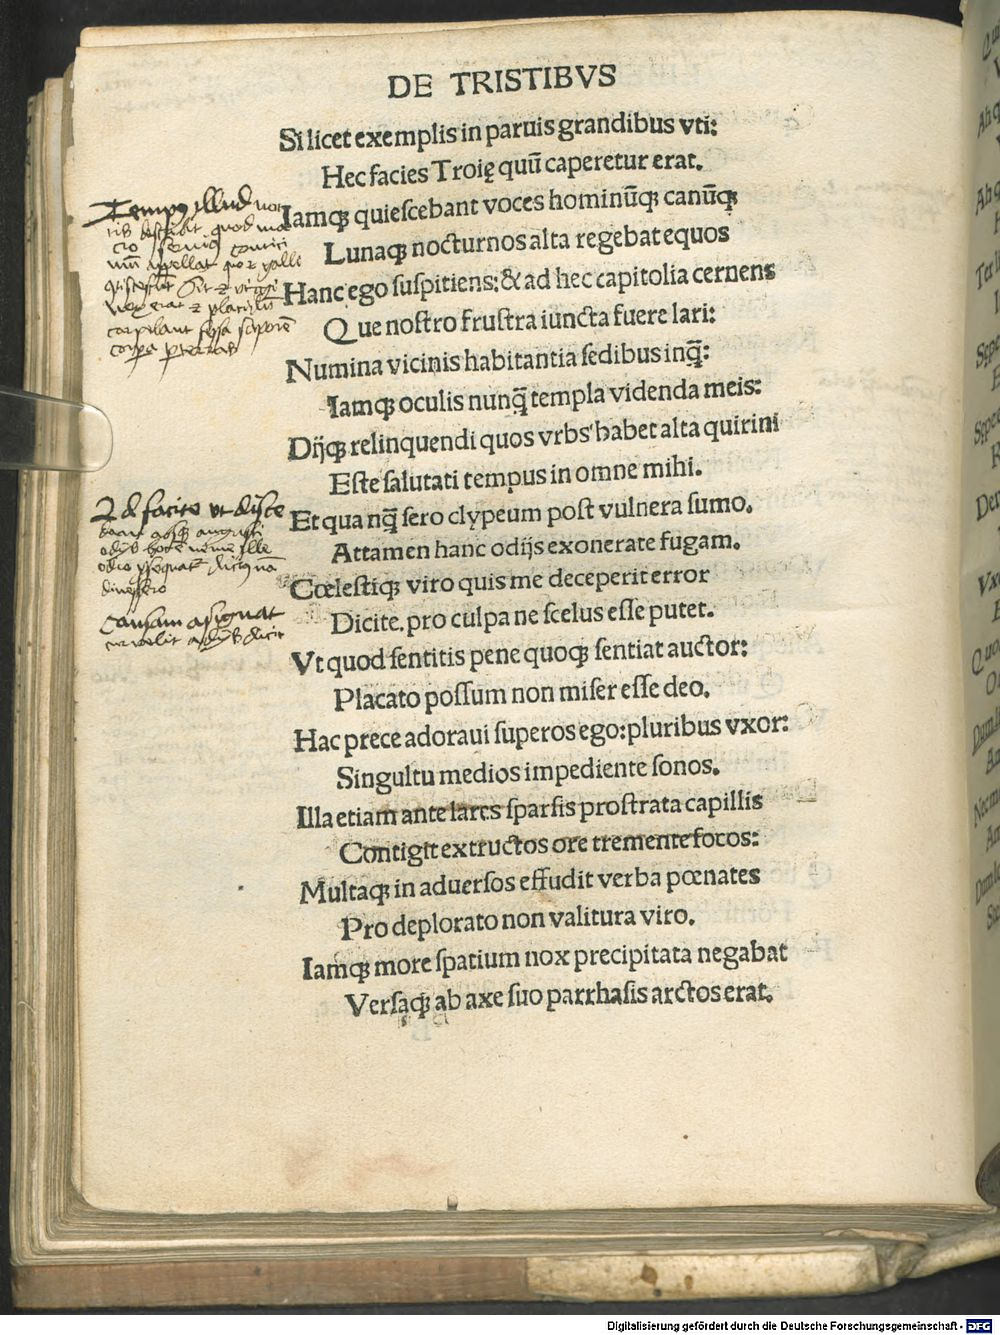 DE TRISTIBVS
Si licet exemplis in paruis grandibus vti:
Hec facies Troię quū caperetur erat.
Iamqꝫ quieſcebant voces hominūqꝫ canūqꝫ
Lunaqꝫ nocturnos alta regebat equos
Hanc ego ſuſpitiens: & ad hec capitolia cernens
Que noſtro fruſtra iuncta fuere lari:
Numina vicinis habitantia ſedibus inq̄:
Iamqꝫ oculis nunq̄ templa videnda meis:
Dijqꝫ relinquendi quos vrbs habet alta quirini
Eſte ſalutati tempus in omne mihi.
Et qua nq̄ ſero clypeum poſt vulnera ſumo.
Attamen hanc odijs exonerate fugam.
Cœleſtiqꝫ viro quis me deceperit error
Dicite. pro culpa ne ſcelus eſſe putet.
Vt quod ſentitis pene quoqꝫ ſentiat auctor:
Placato poſſum non miſer eſſe deo.
Hac prece adoraui ſuperos ego: pluribus vxor:
Singultu medios impediente ſonos.
Illa etiam ante lares ſparſis proſtrata capillis
Contigit extructos ore tremente focos:
Multaqꝫ in aduerſos effudit verba pœnates
Pro deplorato non valitura viro.
Iamqꝫ more ſpatium nox precipitata negabat
Verſaqꝫ ab axe ſuo parrhaſis arctos erat.
Tempꝰ illud
appellat
Qd facito vt diſce
Cauſam aſignat
Digitalisierung gefördert durch die Deutsche Forschungsgemeinschaft - DFG